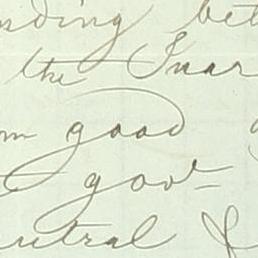 nding bet
the Guar
om good
gov-
utral &